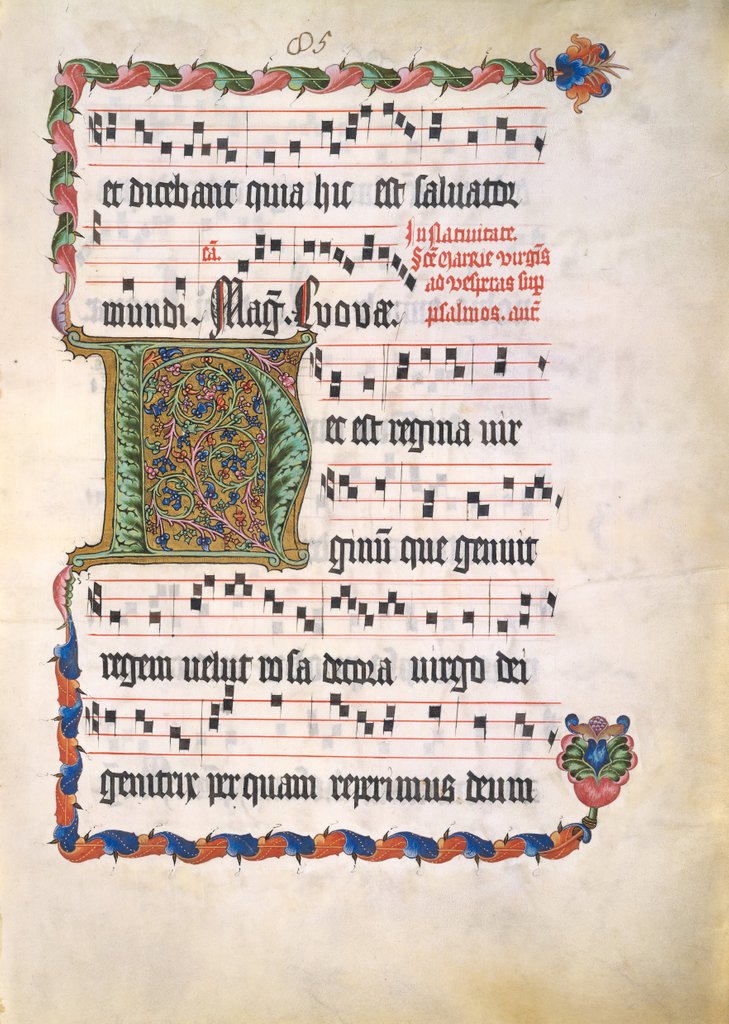 85
et dicebant quia hic est saluator
sã.
In Natiuitate.
Scẽ Marie virgĩs
ad vesperas sup
psalmos. ant̃.
mundi. Mag̃. Evovae.
Hec est regina uir
ginũ que genuit
regem uelut rosa decora uirgo dei
genitrix per quam reperimus deum